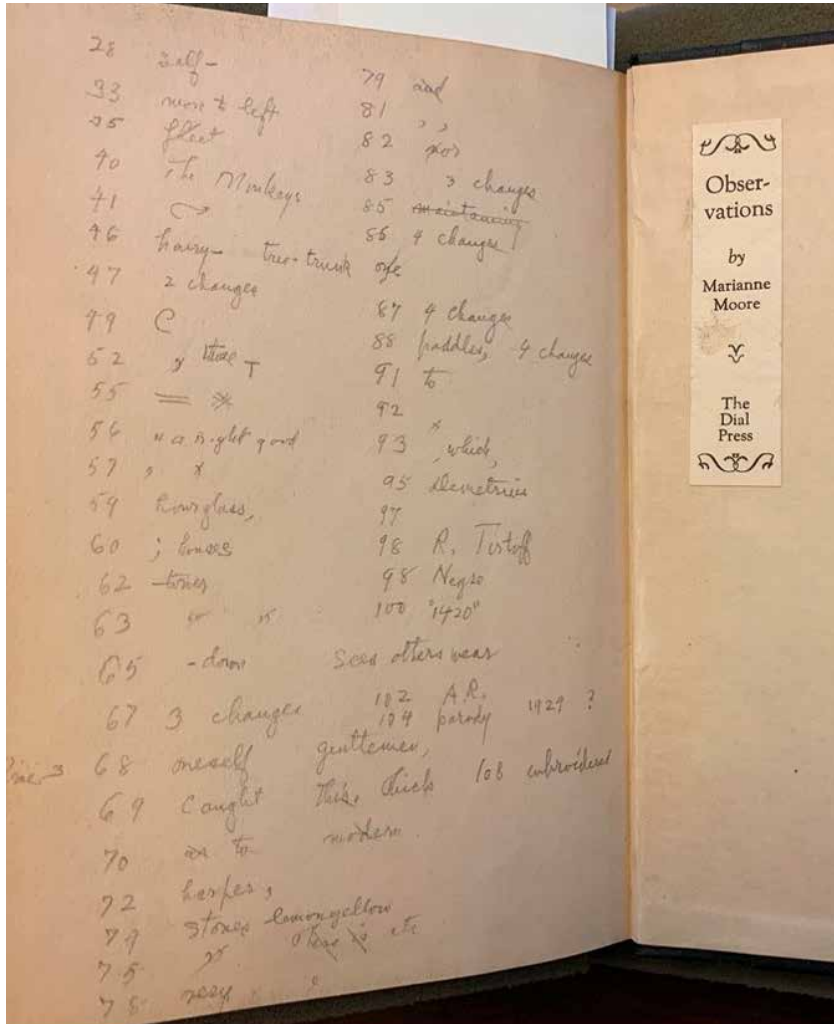 28 self-
33 move to left
35 fleet
40 The Monkeys
41
46 hairy- tree-trunk
47 2 changes
49 C
52 , those
55 = *
56 "a right good
57 , x
59 hourglass,
60 ; houses
62 -tones
63 " "
65 -down sees others wear
67 3 changes
line 3 68 oneself gentlemen,
69 Caught This, thick
70 to modern
72 harper,
74 stones lemonyellow
75 " etc
78
79 and
81 , ,
82 nor
83 3 changes
85 maintaining
86 4 changes
87 4 changes
88 paddles, 4 changes
91 to
92 x
93 , which,
95 Demetrius
97
98 R. Tirtoff
98 Negro
100 "1420"
102 A.R.
104 parody 1929 ?
108 embroidered
Obser-
vations
by
Marianne
Moore
The
Dial
Press